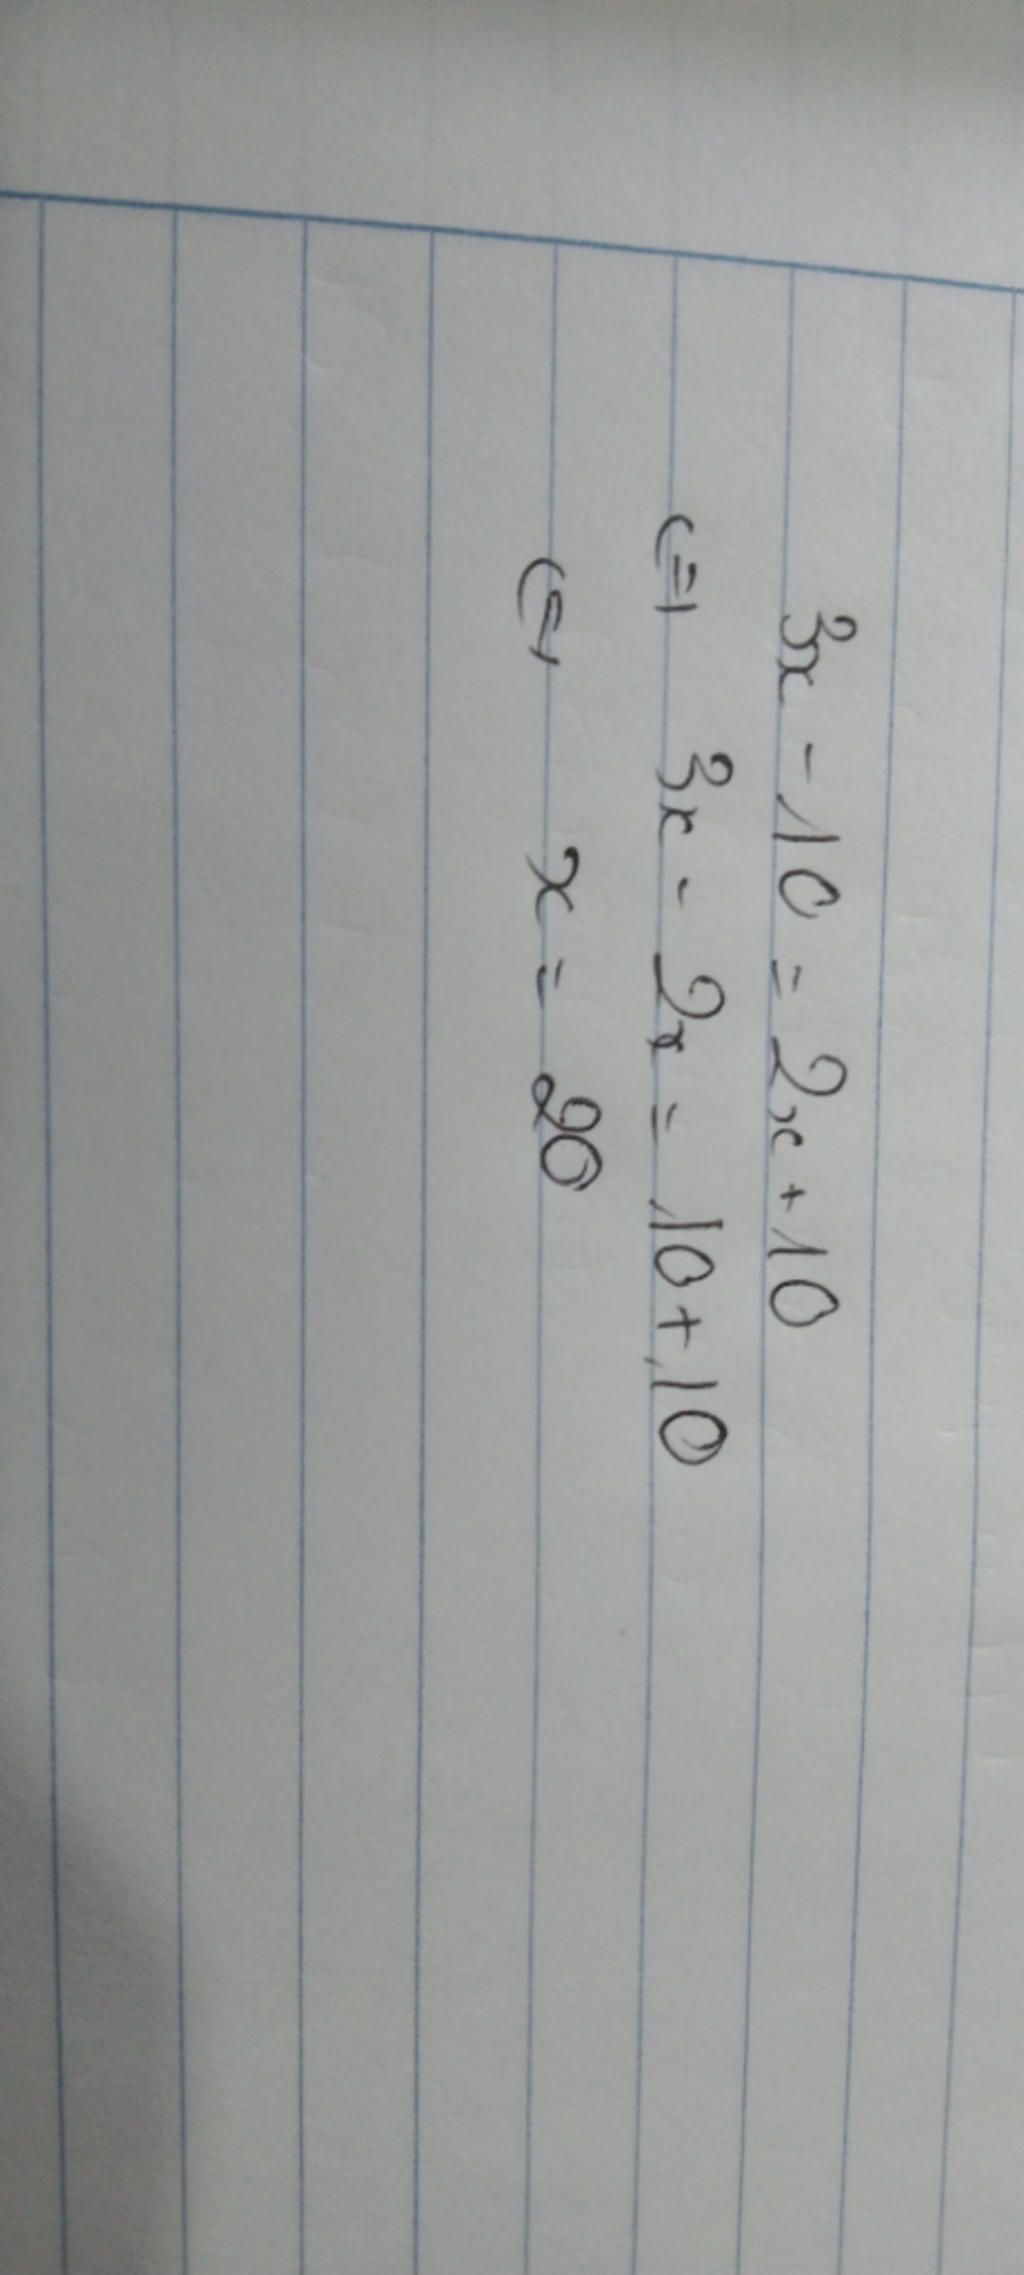 3x - 10 = 2x + 10
<=> 3x - 2x = 10 + 10
<=> x = 20